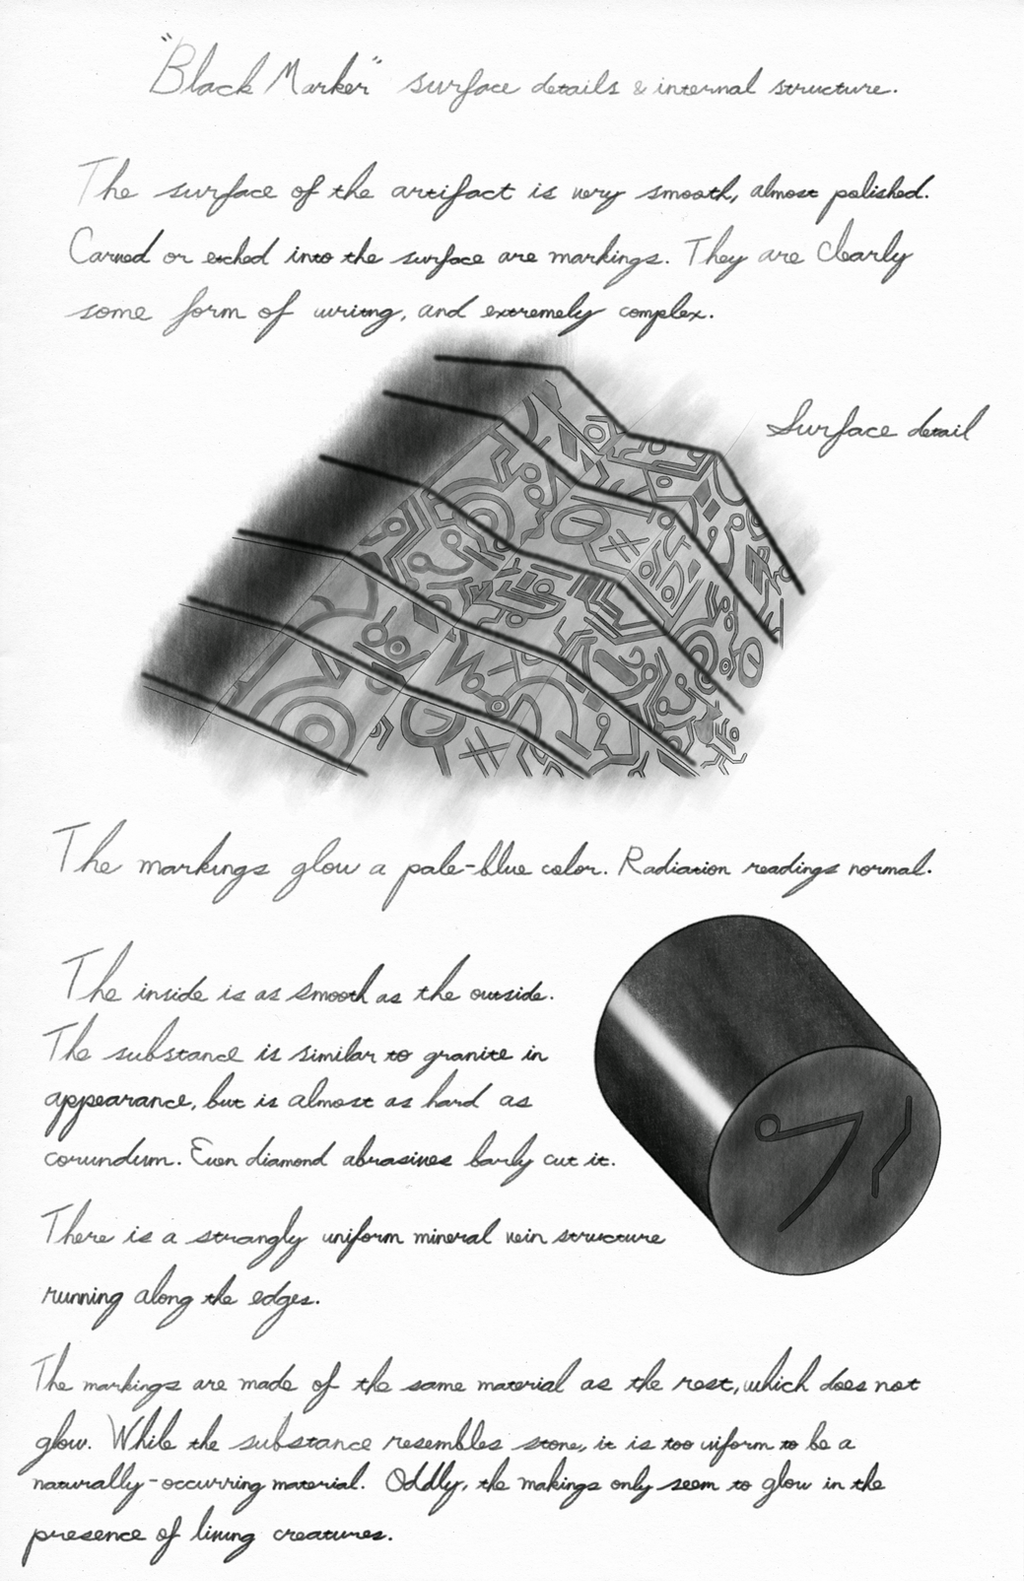 "Black Marker" surface details & internal structure.
The surface of the artifact is very smooth, almost polished.
Carved or etched into the surface are markings. They are clearly
some form of writing, and extremely complex.
Surface detail
The markings glow a pale-blue color. Radiation readings normal.
The inside is as smooth as the outside.
The substance is similar to granite in
appearance, but is almost as hard as
corundum. Even diamond abrasives barly cut it.
There is a strangly uniform mineral vein structure
running along the edges.
The markings are made of the same material as the rest, which does not
glow. While the substance resembles stone, it is too uiform to be a
naturally-occurring material. Oddly, the makings only seem to glow in the
presence of living creatures.